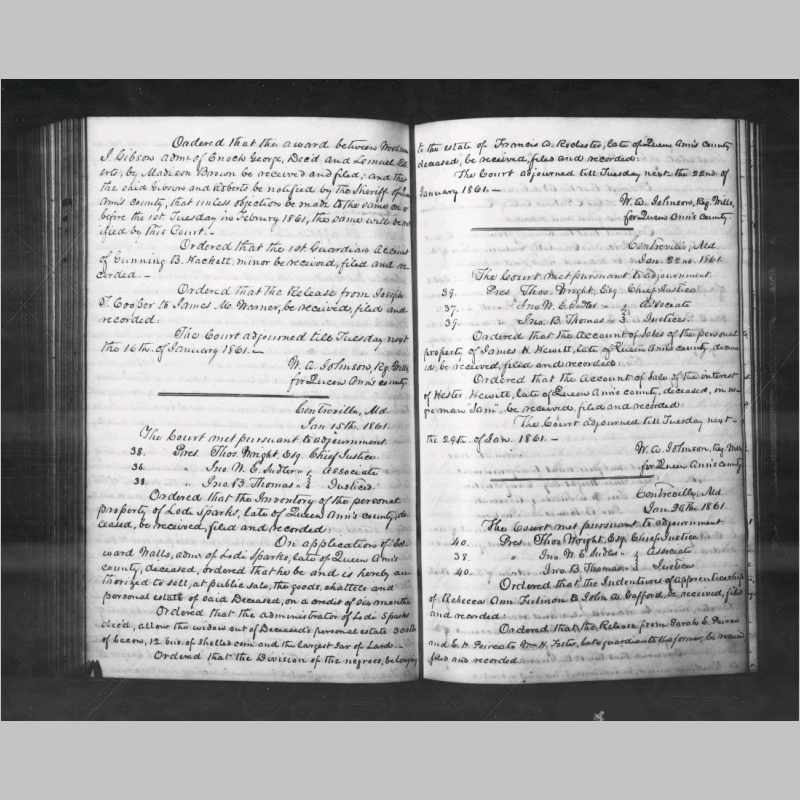 Ordered that the award between
J. Gibson admr of Enoch George, Dec'd and Lemuel
erts, by Madison Brown be received and filed; and
the said Gibson and Roberts be notified by the Sheriff of
Ann's county, that unless objection be made to the same on or
before the 1st Tuesday in Februry 1861, the same will be
ified by this Court. —
Ordered that the 1st. Guardian Account
of Cunning B. Hackett, minor be received, filed and re
corded. —
Ordered that the Release from Joseph
T. Cooper to James M. Warner, be received, filed and
recorded.
The Court adjourned till Tuesday next
the 16th. of January 1861. —
W. A. Johnson, Reg. Wills
for Queen Ann's county
Centreville, Md.
Jan 15th. 1861.
The Court met pursuant to adjournment.
38. Pres. Thos. Wright, Esq. Chief Justice
36. " Jno. W. E. Sudler " Associate
38. " Jno. B. Thomas " Justices.
Ordered that the Inventory of the personal
property of Lodi Sparks, late of Queen Ann's county, de
ceased, be received, filed and recorded.
On application of Ed
ward Walls, admr of Lodi Sparks, late of Queen Ann's
county, deceased, ordered that he be and is hereby au
thorized to sell, at public sale, the goods, chattels and
personal estate of said Deceased, on a credit of six months
Ordered that the administrator of Lodi Sparks
dec'd, allow the widow out of Deceased's personal estate 300 lbs
of bacon, 12 bus. of shelled corn and the largest Jar of Lard. —
Ordered that the Division of the negroes, belonging
to the estate of Francis A. Rochester, late of Queen Ann's county
deceased, be received, filed and recorded.
The Court adjourned till Tuesday next the 22nd. of
January 1861. —
W. A. Johnson, Reg. Wills,
for Queen Ann's County
Centreville, Md.
Jan. 22nd. 1861
The Court met pursuant to adjournment.
39. Pres. Thos. Wright, Esq. Chief Justice
37. " Jno. W. E. Sudler " Associate
39. " Jno. B. Thomas " Justices.
Ordered that the Account of Sales of the personal
property of James H. Hewitt, late of Queen Ann's county, deceas
ed, be received, filed and recorded.
Ordered that the Account of Sale of the interest
of Hester Hewitt, late of Queen Ann's county, deceased, in ne
gro man Sam. be received, filed and recorded.
The Court adjourned till Tuesday next
the 29th. of Jan. 1861. —
W. A. Johnson, Reg. Wills
for Queen Ann's County
Centreville, Md.
Jan. 1861.
The Court met pursuant to adjournment
40. Pres. Thos. Wright, Esq. Chief Justice
38. " Jno. W. E. Sudler " Associate
40. " Jno. B. Thomas " Justices
Ordered that the Indenture of apprenticeship
of Rebecca Ann to John A. Gafford, be received, filed
and recorded
Ordered that the Release from Sarah E.
and E. H. to Wm. H. Foster, late guardian to the former, be received
filed and recorded.